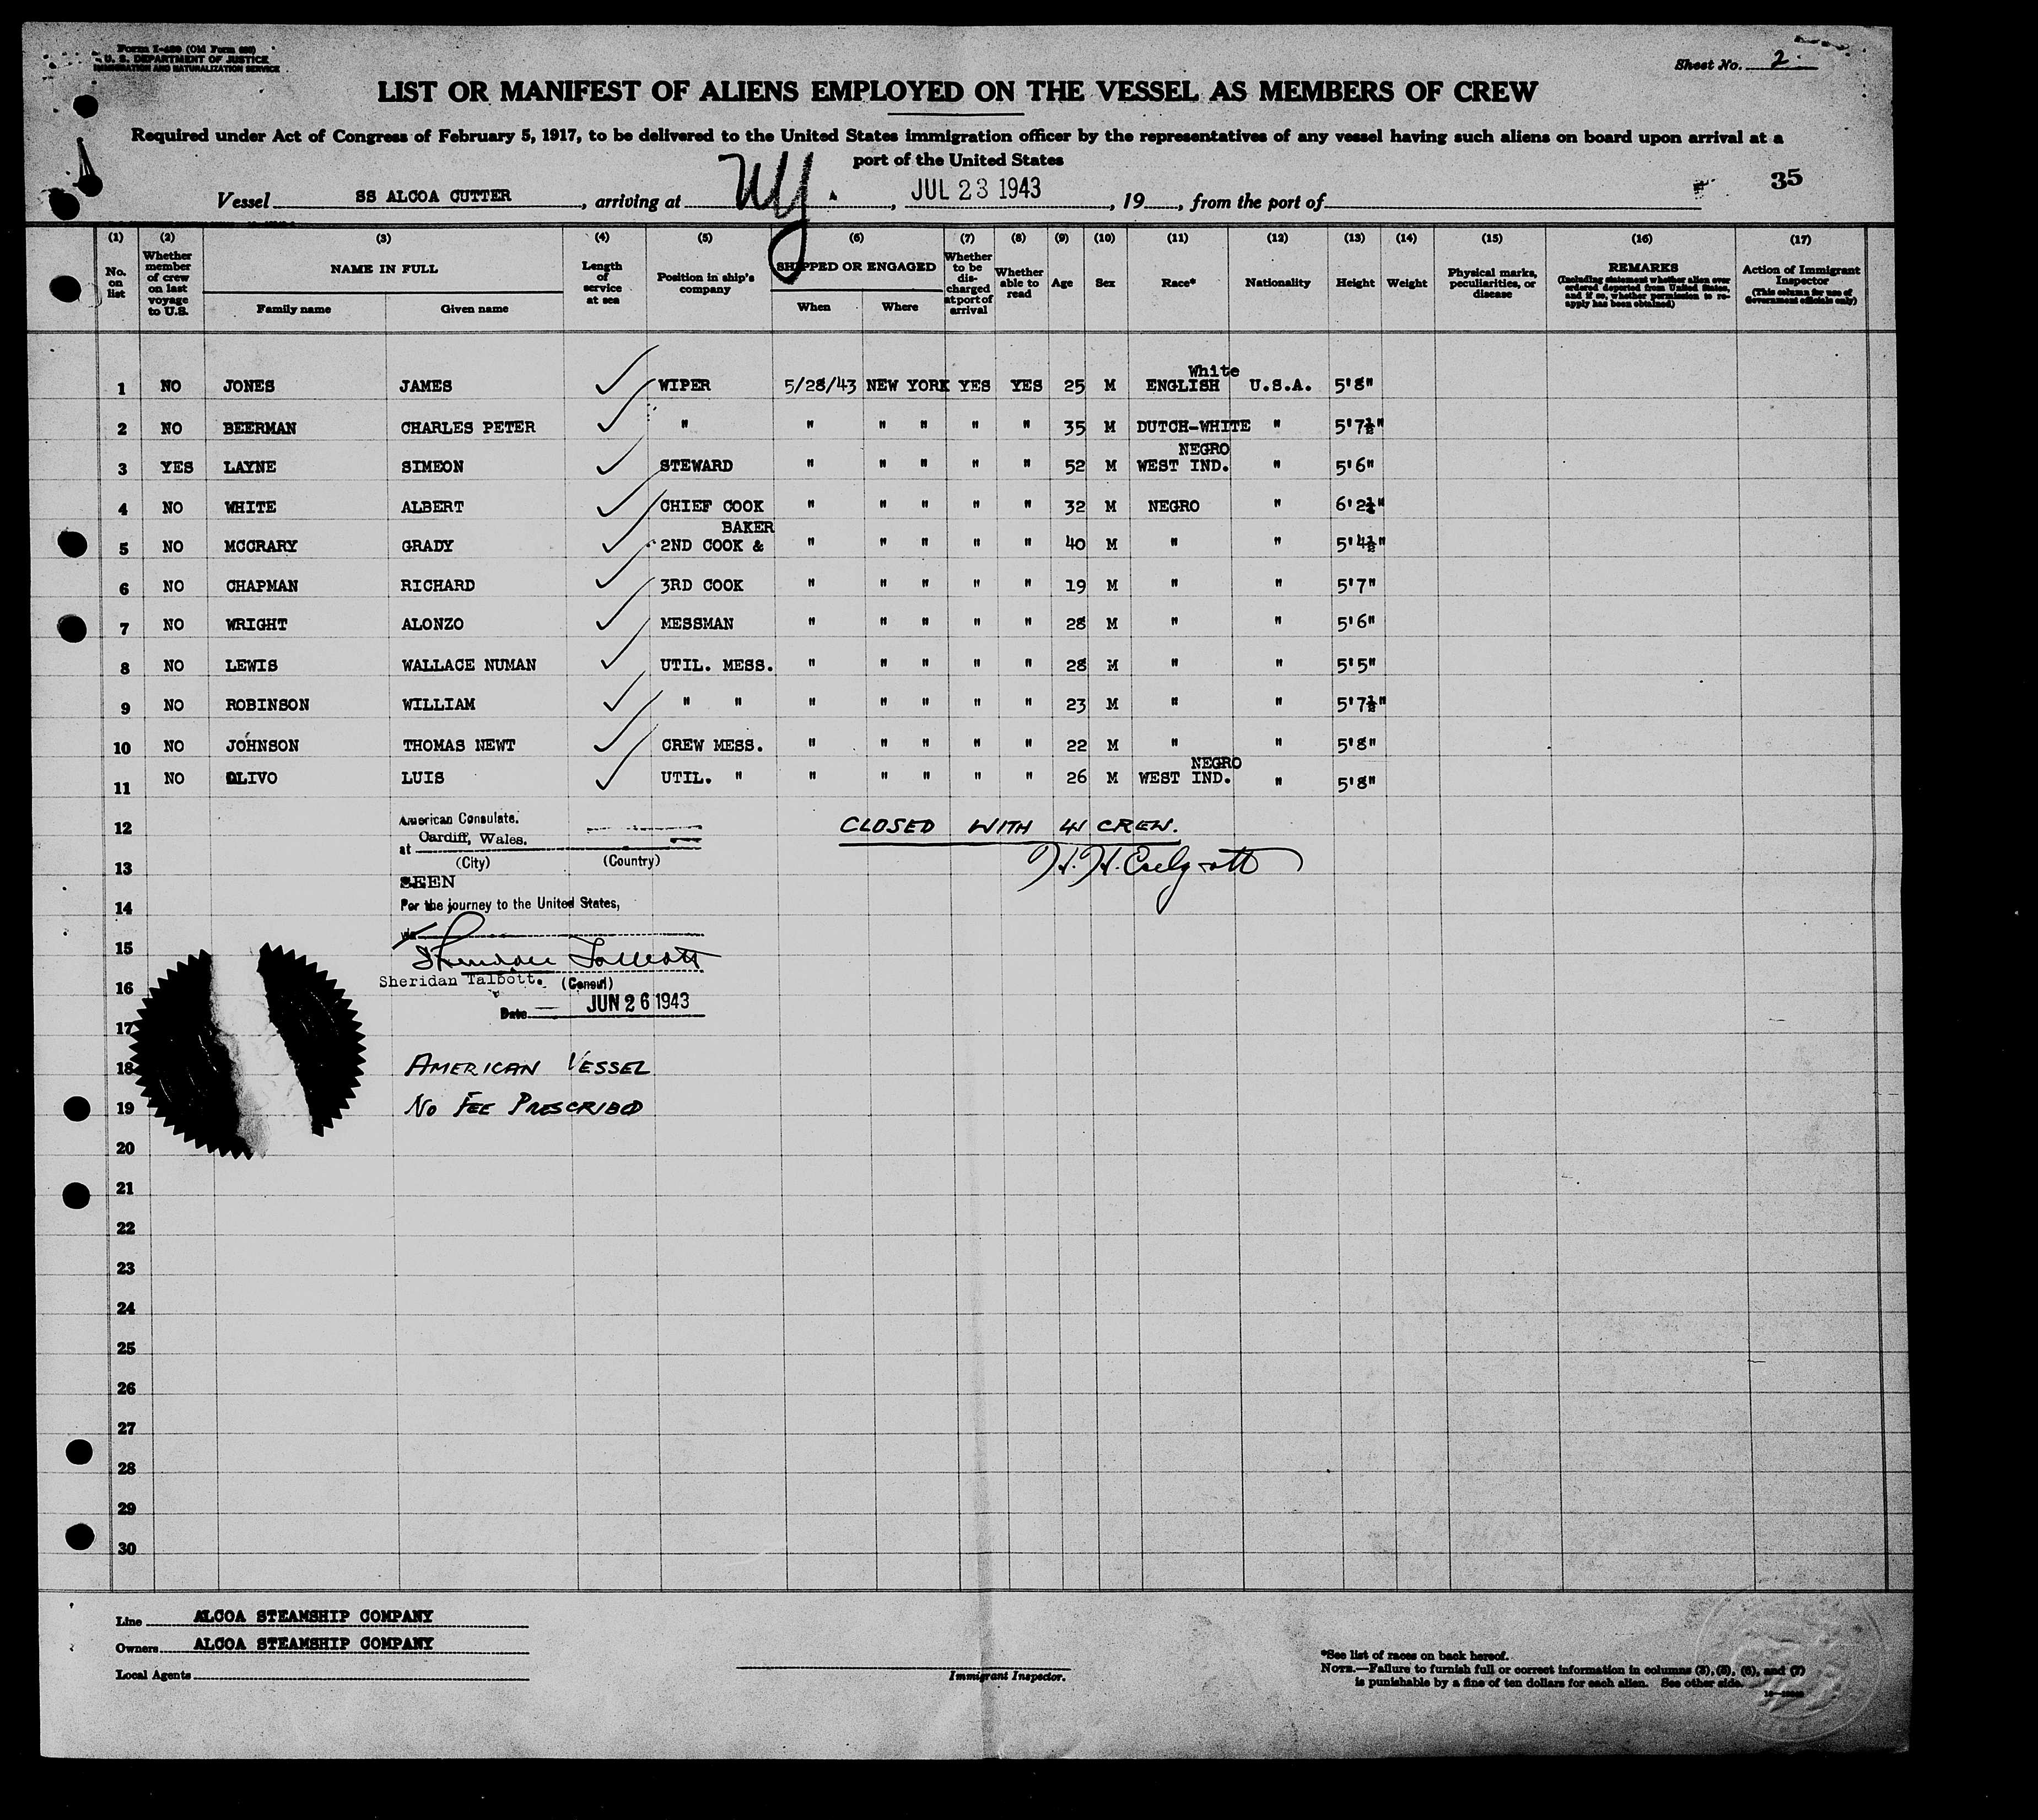 Form I-480 (Old Form 680)
U. S. DEPARTMENT OF JUSTICE
IMMIGRATION AND NATURALIZATION SERVICE
Sheet No. 2.
LIST OR MANIFEST OF ALIENS EMPLOYED ON THE VESSEL AS MEMBERS OF CREW
Required under Act of Congress of February 5, 1917, to be delivered to the United States immigration officer by the representatives of any vessel having such aliens on board upon arrival at a
port of the United States
35
Vessel SS ALCOA CUTTER, arriving at NY, JUL 23 1943, 19, from the port of
(1) (2) (3) (4) (5) (6) (7) (8) (9) (10) (11) (12) (13) (14) (15) (16) (17)
No. on list
Whether member of crew on last voyage to U.S.
NAME IN FULL
Family name Given name
Length of service at sea
Position in ship's company
SHIPPED OR ENGAGED
When Where
Whether to be discharged at port of arrival
Whether able to read
Age Sex Race* Nationality Height Weight
Physical marks, peculiarities, or disease
REMARKS
(Including statement whether alien ever ordered deported from United States, and if so, whether permission to re-apply has been obtained)
Action of Immigrant Inspector
(This column for use of Government officials only)
White
1 NO JONES JAMES ✓ WIPER 5/28/43 NEW YORK YES YES 25 M ENGLISH U.S.A. 5'8"
2 NO BEERMAN CHARLES PETER ✓ " " " " " " 35 M DUTCH-WHITE " 5'7½"
NEGRO
3 YES LAYNE SIMEON ✓ STEWARD " " " " " 52 M WEST IND. " 5'6"
4 NO WHITE ALBERT ✓ CHIEF COOK " " " " " 32 M NEGRO " 6'2½"
BAKER
5 NO MCCRARY GRADY ✓ 2ND COOK & " " " " " 40 M " " 5'4½"
6 NO CHAPMAN RICHARD ✓ 3RD COOK " " " " " 19 M " " 5'7"
7 NO WRIGHT ALONZO ✓ MESSMAN " " " " " 28 M " " 5'6"
8 NO LEWIS WALLACE NUMAN ✓ UTIL. MESS. " " " " " 28 M " " 5'5"
9 NO ROBINSON WILLIAM ✓ " " " " " " " 23 M " " 5'7½"
10 NO JOHNSON THOMAS NEWT ✓ CREW MESS. " " " " " 22 M " " 5'8"
NEGRO
11 NO OLIVO LUIS ✓ UTIL. " " " " " " 26 M WEST IND. " 5'8"
American Consulate.
12 CLOSED WITH 41 CREW.
at Cardiff, Wales.
(City) (Country)
13 H. H.
SEEN
14 For the journey to the United States,
via
15 Sheridan Talbott
16 Sheridan Talbott. (Consul)
Date JUN 26 1943
17
18 AMERICAN VESSEL
19 NO FEE PRESCRIBED
20
21
22
23
24
25
26
27
28
29
30
Line ALCOA STEAMSHIP COMPANY
Owners ALCOA STEAMSHIP COMPANY
Local Agents
Immigrant Inspector.
*See list of races on back hereof.
NOTE.—Failure to furnish full or correct information in columns (2), (3), (5), and (7)
is punishable by a fine of ten dollars for each alien. See other side.